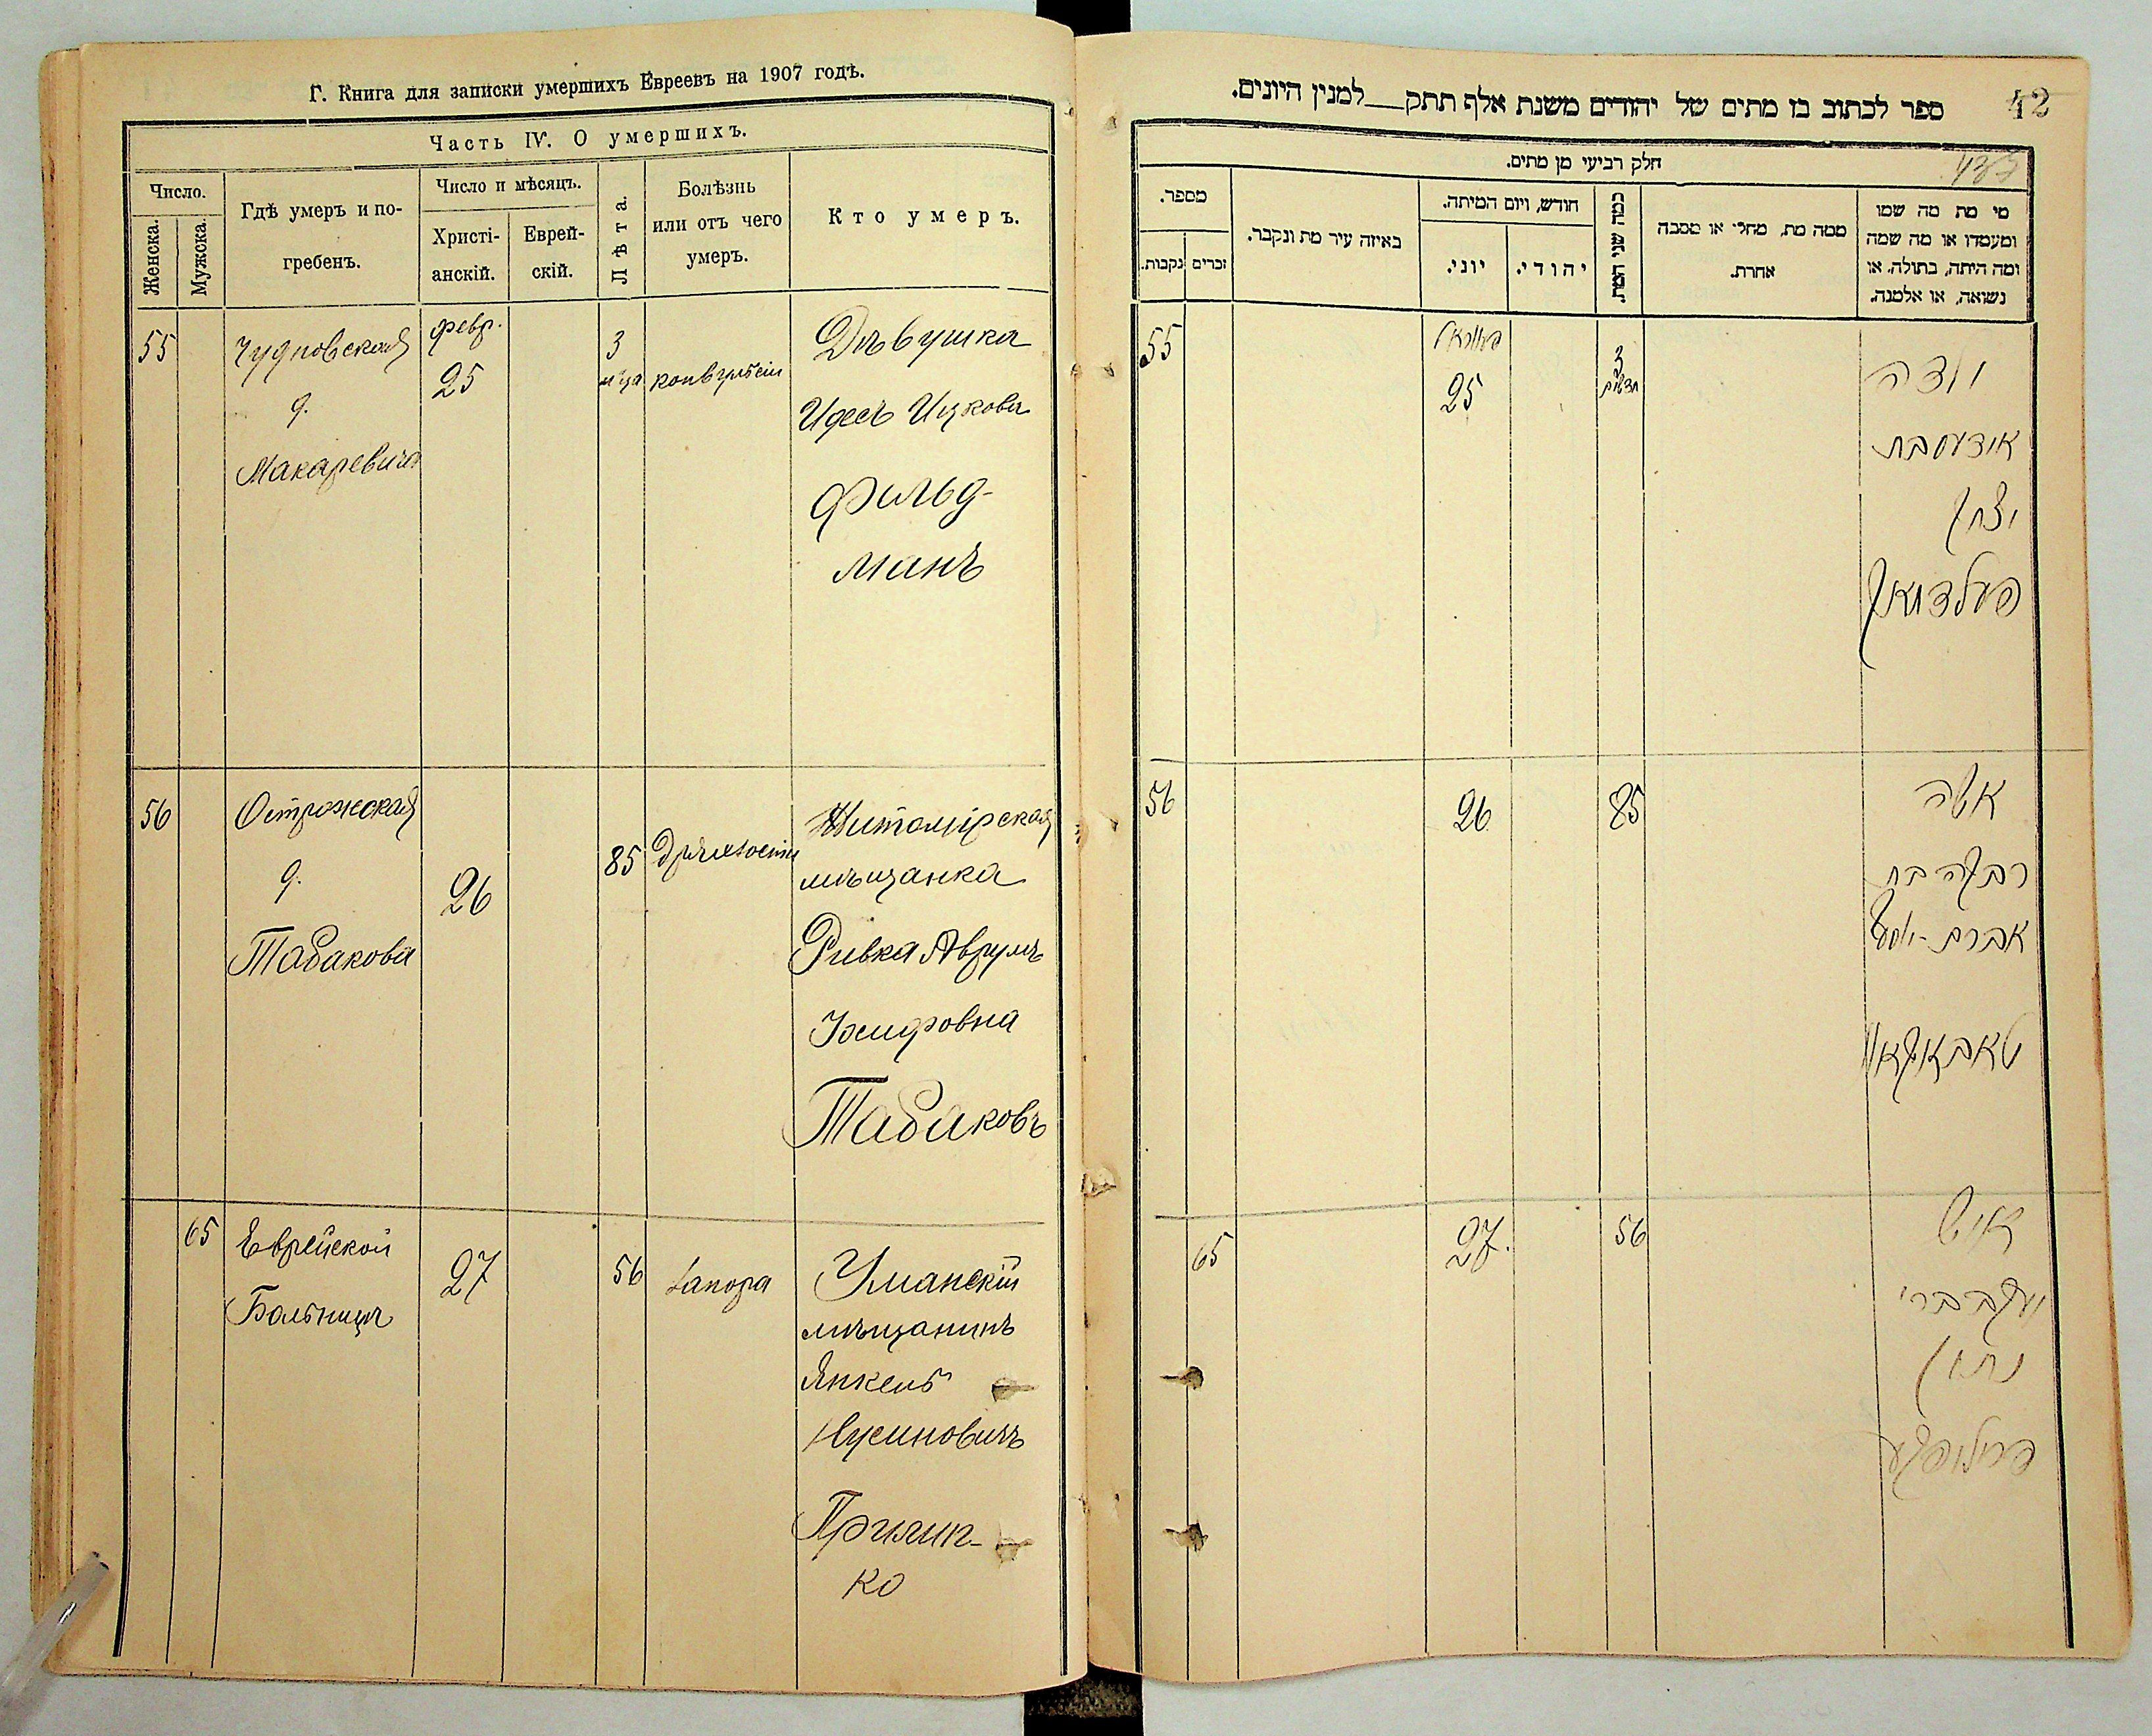 Г. Книга для записки умершихъ Евреевъ на 1907 годъ.
Часть IV. О умершихъ.
Число.
Женска.
Мужска.
Гдѣ умеръ и по-
гребенъ.
Число и мѣсяцъ.
Христі-
анскій.
Еврей-
скій.
Лѣта.
Болѣзнь
или отъ чего
умеръ.
Кто умеръ.
55
Чудновская
д.
Макаревича
февр.
25
3
м‑ца
Дѣвушка
Идесъ Ицкова
Фильд-
манъ
56
Острожская
д.
Табакова
26
85
Житомірская
мѣщанка
Ривка Аврумъ
Іосифовна
Табаковъ
65
Еврейской
Больницѣ
27
56
запора
Уманскій
мѣщанинъ
Янкель
Нусиновичъ
Прилип-
ко
42
ספר לכתוב בו מתים של יהודים משנת אלף תתק___למנין היונים.
חלק רביעי מן מתים.
מספר.
נקבות.
זכרים
באיזה עיר מת ונקבר.
חודש, ויום המיתה.
יוני.
יהודי.
כמה שני המת.
ממה מת, מחלי או מסבה
אחרת.
מי מת מה שמו
ומעמדו או מה שמה
ומה היתה, בתולה, או
נשואה, או אלמנה.
55
25
3
חדשים
ילדה
אידעס בת
יצחק
פעלדמאן
56
26
85
אשה
רבקה בת
אברם-יוסף
טאבאקאוו
65
27.
56
איש
יעקב ברי
נתן